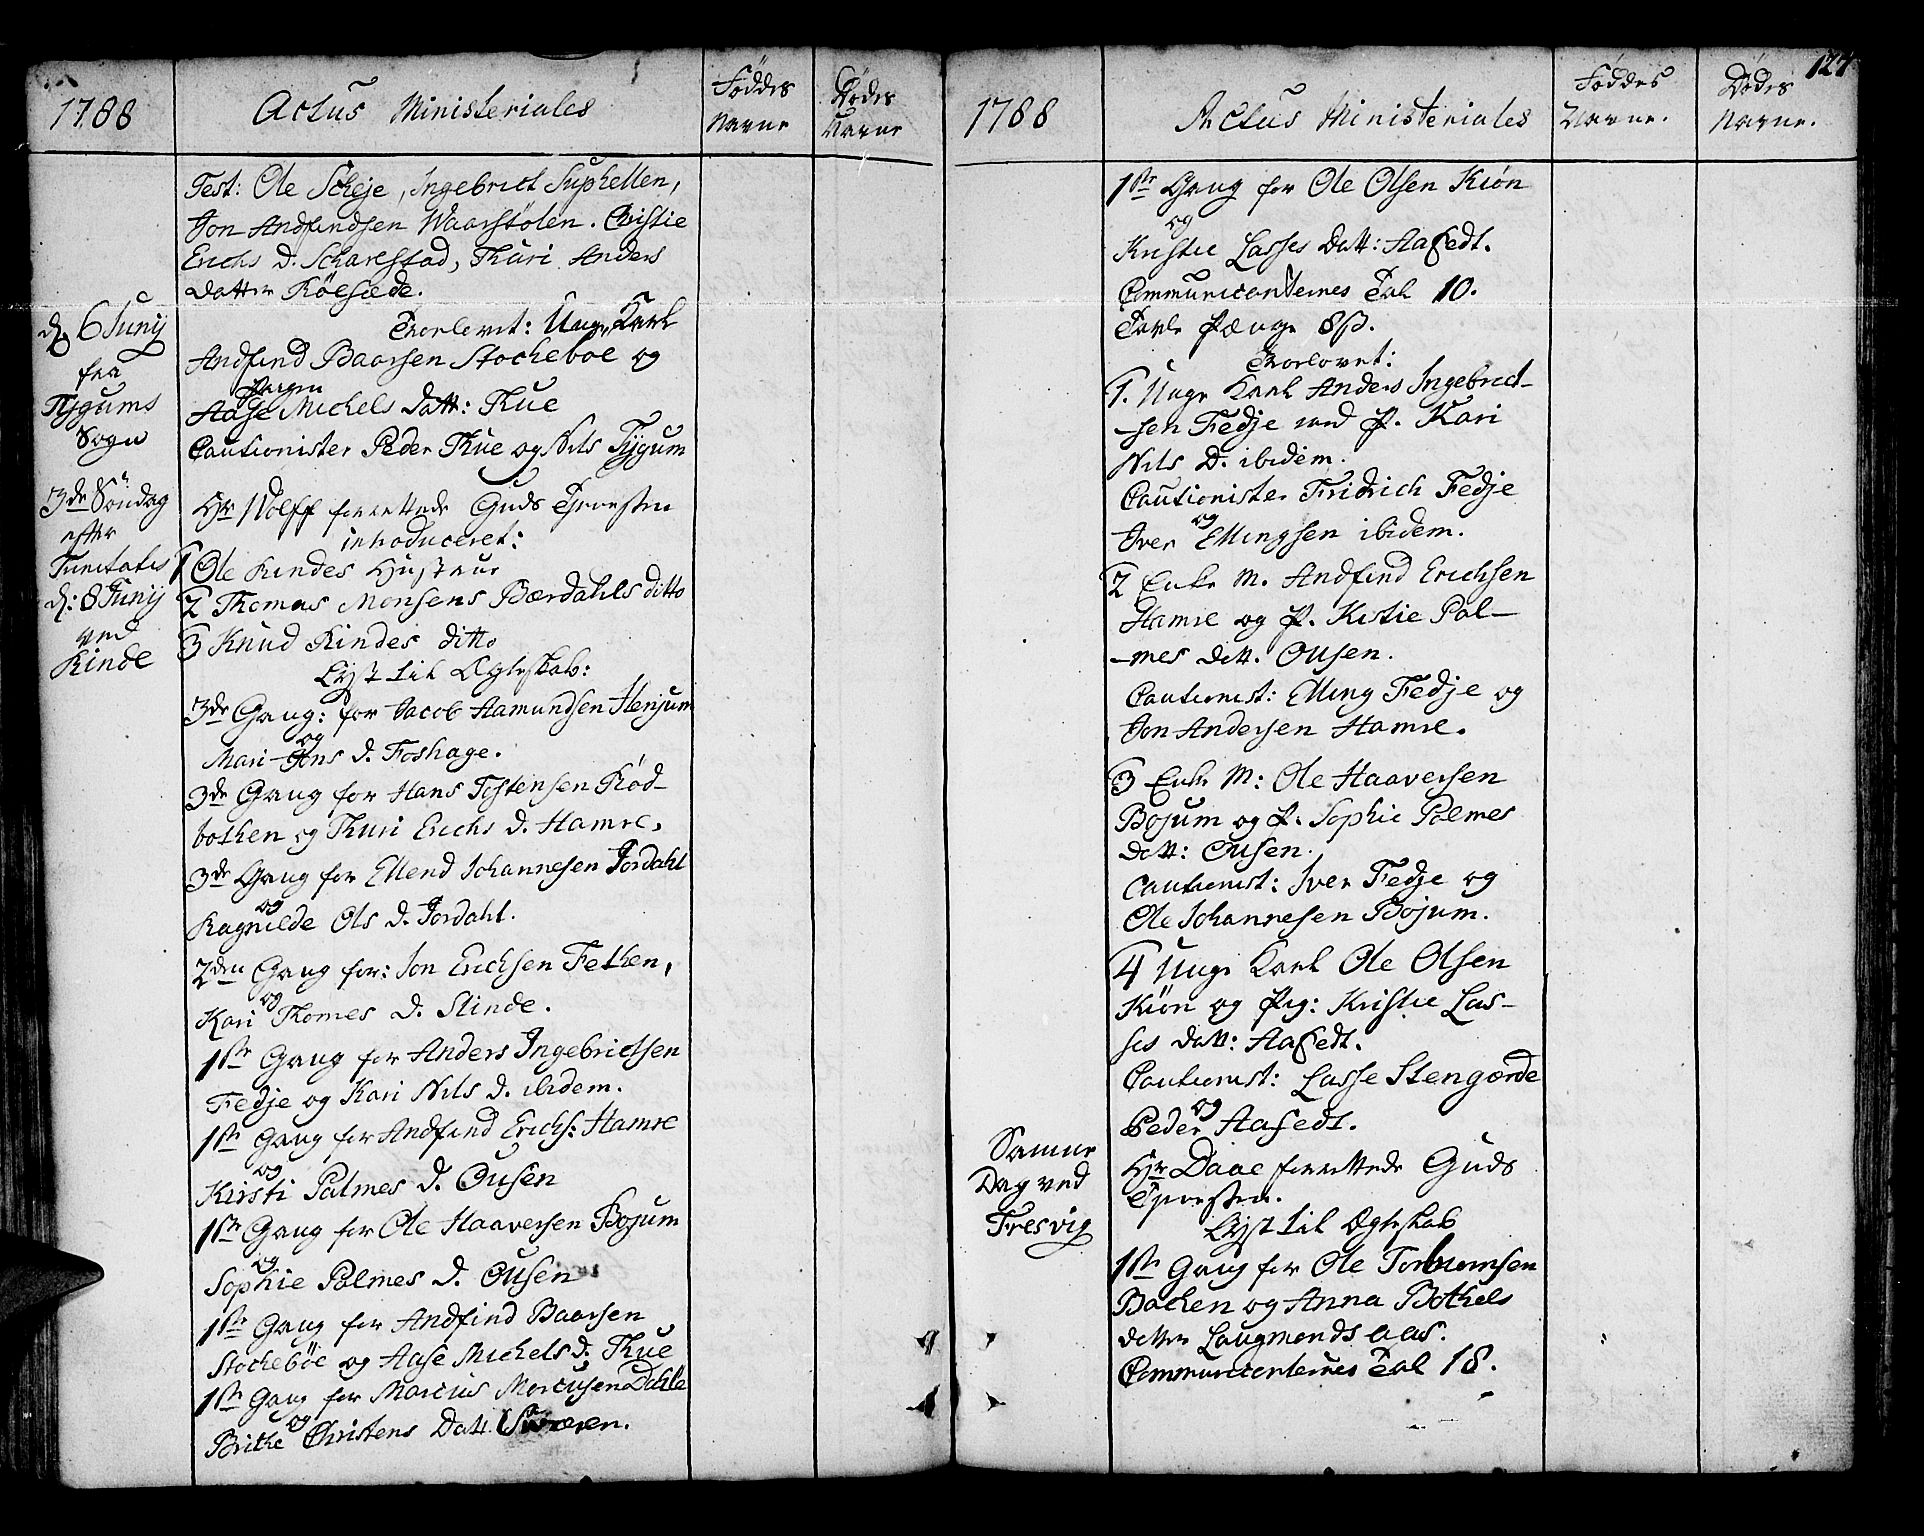 1788
Actus Ministeriales
Föddes Navne
Dödes Navne
Test: Ole Scheje, Ingebrict Suphellen,
Jon Andfindsen Waarstölen. Christie
Erichs D. Scharestad, Thuri Anders
datter Röesæde.
d. 6 Junij
fra
Tygums
Sogn
Trorlovet: Unge Karl
Andfind Baarsen Stocheboe og
Pigen
Aase Michels Datt: Thue
Cautionister Peder Thue og Nils Tygum
3de Söndag
efter
Trinitatis
d: 8 Junij
ved
Rinde
Hr Wolff forrettede Guds Tjenesten
introduceret:
1 Ole Rindes Hustrue
2 Thomas Monsens Bærdahls ditto
3 Knud Rindes ditto
Lyst til Ægteskab:
3de Gang: for Jacob Aamundsen Henjum
og
Mari Jons D. Foshage.
3de Gang for Hans Tostensen Röd-
bothen og Thuri Erichs D. Hamre,
3de Gang for Ellend Johannesen Jordahl
og
Ragnilde Ols D. Jordahl.
2den Gang for: Jon Erichsen Fethen,
og
Kari Thomes D. Slinde.
1ste Gang for Anders Ingebrictsen
Fedje og Kari Nils D. ibidem.
1ste Gang for Andfind Erichs: Hamre
og
Kirsti Palmes D. Ousen
1ste Gang for Ole Haaversen Bojum
og
Sophie Palmes D. Ousen
1ste Gang for Andfind Baarsen
Stocheböe og Aase Michels D. Thue
1ste Gang for Marcus Marcusen Dahle
og
Brithe Christens Datt.
127
1788
Actus Ministeriales
Föddes Navne.
Dödes Navne.
1ste Gang for Ole Olsen Kiön
og
Kristie Lasses Datt: Aafedt.
Communicanternes Tal 10.
Tavle Penge 8 ß.
Trorlovet:
1. Unge Karl Anders Ingebrict-
sen Fedje med P. Kari
Nils D. ibidem.
Cautionister Fridrich Fedje
og
Iver Ellingsen ibidem.
2 Enke M. Andfind Erichsen
Hamre og P. Kistie Pal-
mes Dett. Ousen.
Cautionist: Elling Fedje og
Jon Andersen Hamre.
3 Enke M: Ole Haaversen
Bojum og P. Sophie Palmes
Datt: Ousen.
Cautionist: Iver Fedje og
Ole Johannesen Bojum.
4 Unge Karl Ole Olsen
Kiön og Pig: Kristie Las-
ses Datt: Aafedt.
Cautionist: Lasse Stengærde
og
Peder Aafedt.
Samme
Dag ved
Tresvig
Hr Daae forrettede Guds
Tjenesten.
Lyst til Ægteskab
1ste Gang for Ole Torbiornsen
Bachen og Anna Bothels
datter Laugmandsaas.
Communicanternes Tal 18.